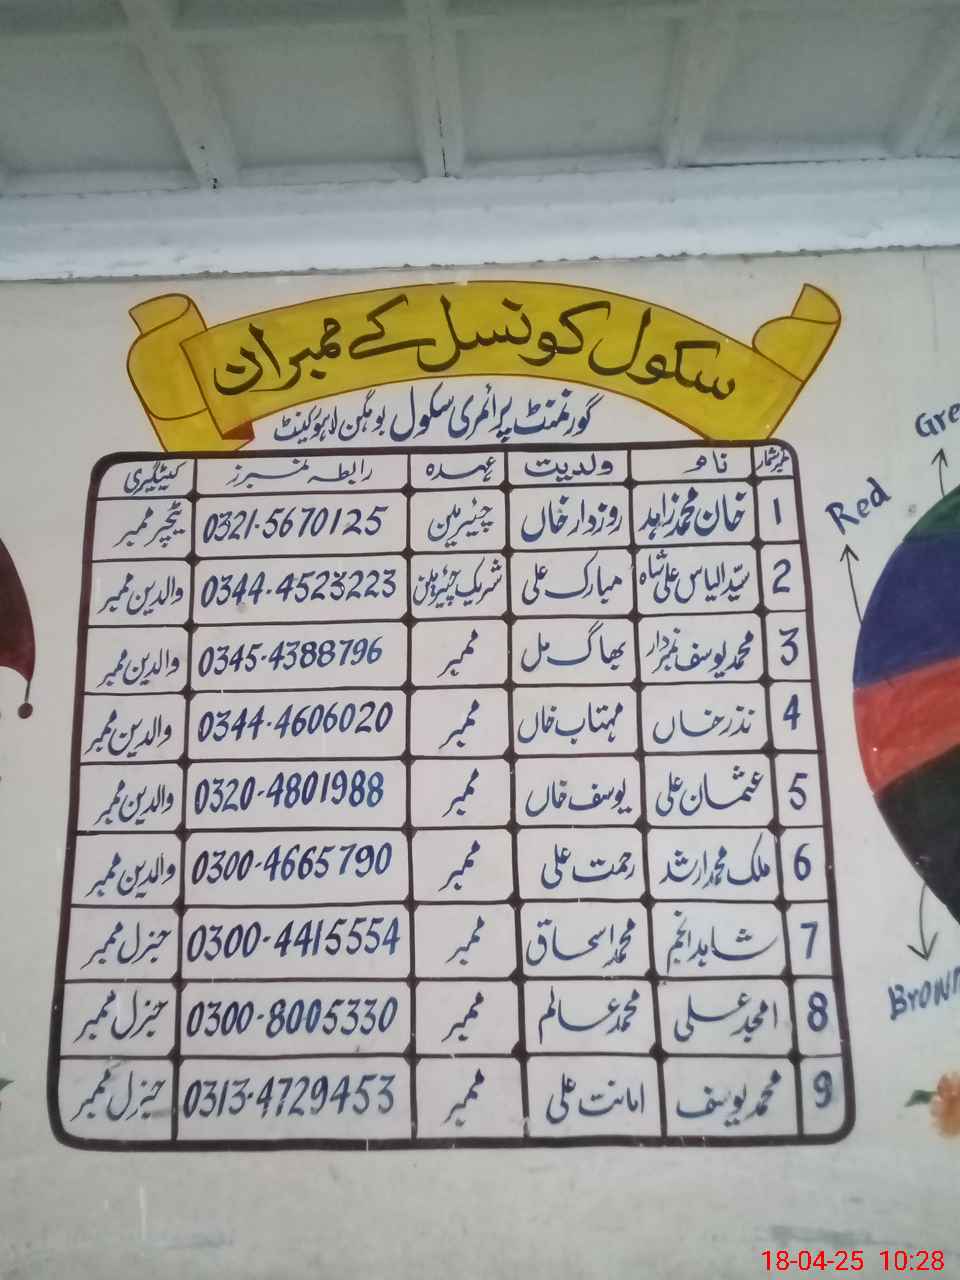 سکول کونسل کے ممبران
گورنمنٹ پرائمری سکول بوہگن لاہور کینٹ
نمبر شمار نام ولدیت عہدہ رابطہ نمبرز کیٹگیری
1 خان محمد زاہد روزدار خاں چیئرمین 0321-5670125 ٹیچر ممبر
2 سیّد الیاس علی شاہ مبارک علی شریک چیئرمین 0344-4523223 والدین ممبر
3 محمد یوسف نمبردار بھاگ مل ممبر 0345-4388796 والدین ممبر
4 نذر خاں مہتاب خاں ممبر 0344-4606020 والدین ممبر
5 عثمان علی یوسف خاں ممبر 0320-4801988 والدین ممبر
6 ملک محمد ارشد رحمت علی ممبر 0300-4665790 والدین ممبر
7 شاہد انجم محمد اسحاق ممبر 0300-4415554 جنرل ممبر
8 امجد علی محمد عالم ممبر 0300-8005330 جنرل ممبر
9 محمد یوسف امانت علی ممبر 0313-4729453 جنرل ممبر
Gre
Red
Brown
18-04-25 10:28